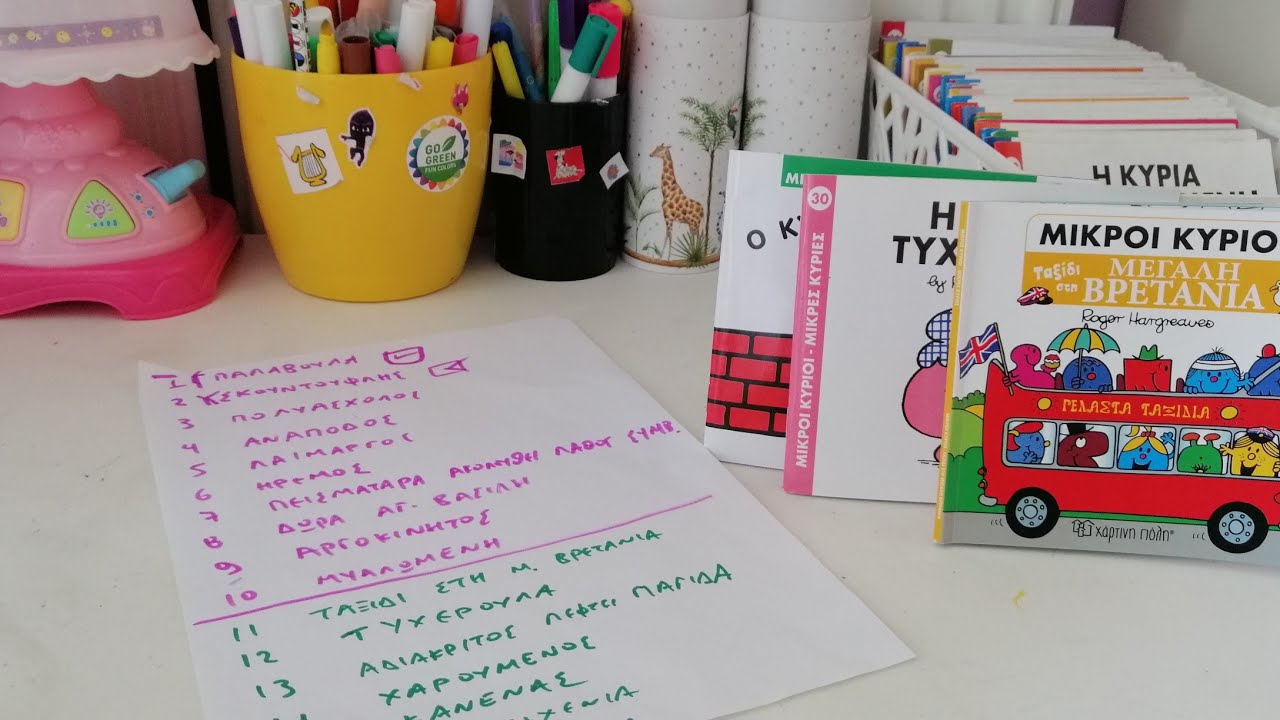 GO
GREEN
FUN COLORS
1 ΠΑΛΑΒΟΥΛΑ
2 ΣΕΚΟΥΝΤΟΥΦΛΗΣ
3 ΠΟΛΥΑΣΧΟΛΟΣ
4 ΑΝΑΠΟΔΟΣ
5 ΛΑΙΜΑΡΓΟΣ
6 ΗΡΕΜΟΣ
7 ΠΕΙΣΜΑΤΑΡΑ ΑΚΟΛΟΥΘΕΙ ΛΑΘΟΣ ΣΥΜΒ.
8 ΔΩΡΑ ΑΓ. ΒΑΣΙΛΗ
9 ΑΡΓΟΚΙΝΗΤΟΣ
10 ΜΥΑΛΩΜΕΝΗ
11 ΤΑΞΙΔΙ ΣΤΗ Μ. ΒΡΕΤΑΝΙΑ
12 ΤΥΧΕΡΟΥΛΑ
13 ΑΔΙΑΚΡΙΤΟΣ ΠΕΦΤΕΙ ΠΑΓΙΔΑ
ΧΑΡΟΥΜΕΝΟΣ
ΚΑΝΕΝΑΣ
Ο Κ
30
ΜΙΚΡΟΙ ΚΥΡΙΟΙ - ΜΙΚΡΕΣ ΚΥΡΙΕΣ
Η
ΤΥΧ
by
Η ΚΥΡΙΑ
ΜΙΚΡΟΙ ΚΥΡΙΟ
Ταξίδι στη ΜΕΓΑΛΗ
ΒΡΕΤΑΝΙΑ
Roger Hargreaves
ΓΕΛΑΣΤΑ ΤΑΞΙΔΙΑ
χάρτινη πόλη